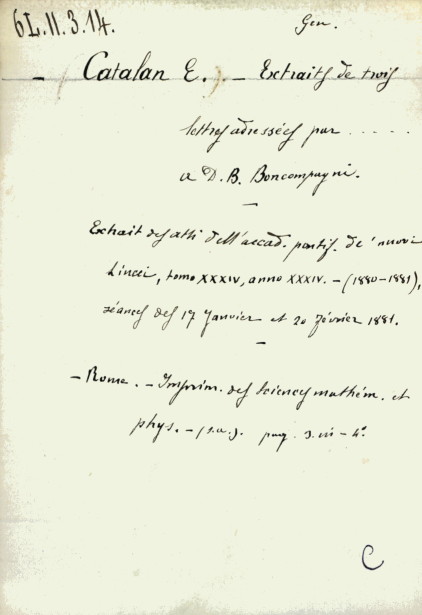 6L.11.3.14.
Gen.
– Catalan E. – Extraits de trois
lettres adressées par .....
a D. B. Boncompagni.
–
Extrait des atti dell'accad. pontif. de' nuovi
Lincei, tomo XXXIV, anno XXXIV. – (1880–1881),
séances des 17 Janvier et 20 Février 1881.
–
– Rome. – Imprim. des sciences mathém. et
phys. – (s.a.). pag. 3. in – 4°
C